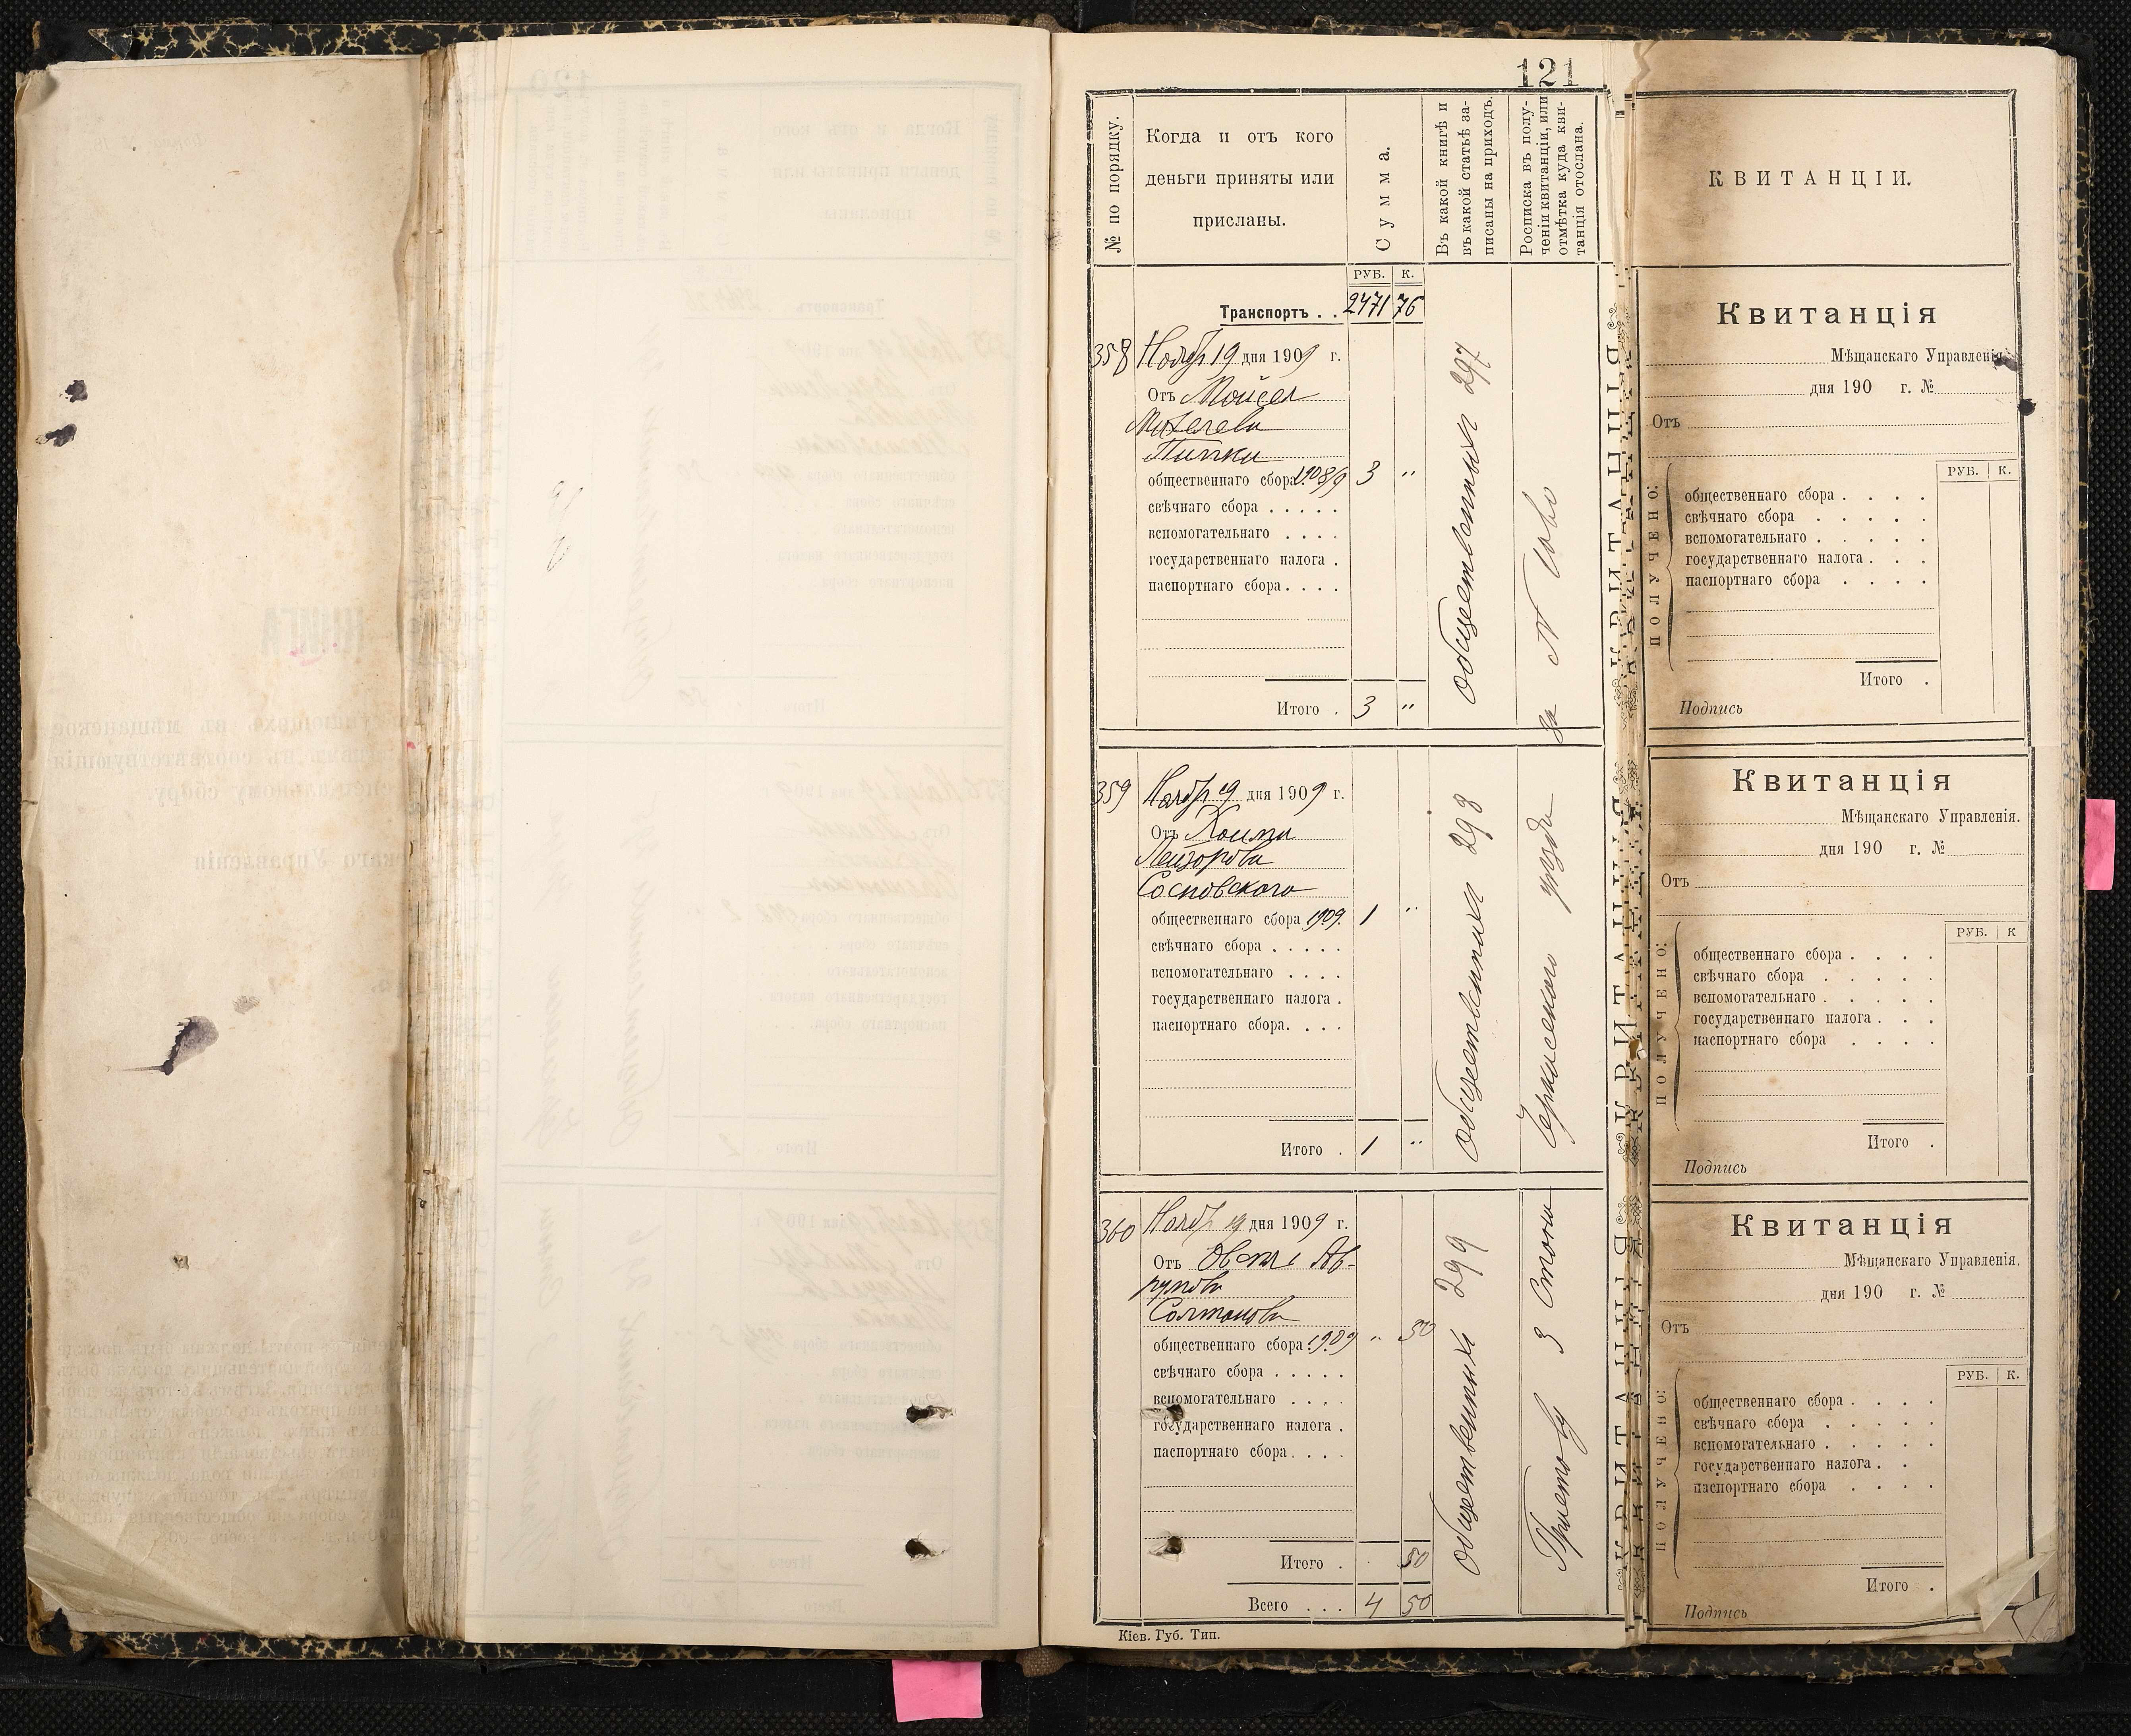 121
№ по порядку.
Когда и отъ кого
деньги приняты или
присланы.
Сумма.
Въ какой книгѣ и
въ какой статьѣ за-
писаны на приходъ.
Росписка въ полу-
ченіи квитанціи, или
отмѣтка куда кви-
танція отослана.
РУБ. К.
Транспортъ . . 2471 76
358 Ноябр 19 дня 1909 г.
Отъ Мойсея
Михелева
Пипки
общественнаго сбора 1908/9 3 "
свѣчнаго сбора . . . . .
вспомогательнаго . . . .
государственнаго налога .
паспортнаго сбора . . . .
Итого . 3 "
общественныя 297
за N
359 Ноябр 19 дня 1909 г.
Отъ Хаима
Лейзорова
Сосновскаго
общественнаго сбора 1909. 1 "
свѣчнаго сбора . . . . .
вспомогательнаго . . . .
государственнаго налога .
паспортнаго сбора . . . .
Итого . 1 "
общественныя 298
Черкасскаго уезда
360 Ноябр 19 дня 1909 г.
Отъ Ав-
румова
Солтанова
общественнаго сбора 1909 " 50
свѣчнаго сбора . . . . .
вспомогательнаго . . . .
государственнаго налога .
паспортнаго сбора . . . .
Итого . 50
Всего . . . 4 50
общественныя 299
Приставу 3 Стана
Кіев. Губ. Тип.
КВИТАНЦІИ.
Квитанція
Мѣщанскаго Управленія.
дня 190 г. №
Отъ
РУБ. К.
ПОЛУЧЕНО:
общественнаго сбора . . . .
свѣчнаго сбора . . . . .
вспомогательнаго . . . . .
государственнаго налога . . .
паспортнаго сбора . . . .
Итого .
Подпись
Квитанція
Мѣщанскаго Управленія.
дня 190 г. №
Отъ
РУБ. К
ПОЛУЧЕНО:
общественнаго сбора . . . .
свѣчнаго сбора . . . . .
вспомогательнаго . . . . .
государственнаго налога . . .
паспортнаго сбора . . . .
Итого .
Подпись
Квитанція
Мѣщанскаго Управленія.
дня 190 г. №
Отъ
РУБ. К.
ПОЛУЧЕНО:
общественнаго сбора . . . .
свѣчнаго сбора . . . . .
вспомогательнаго . . . . .
государственнаго налога . .
паспортнаго сбора . . . .
Итого .
Подпись